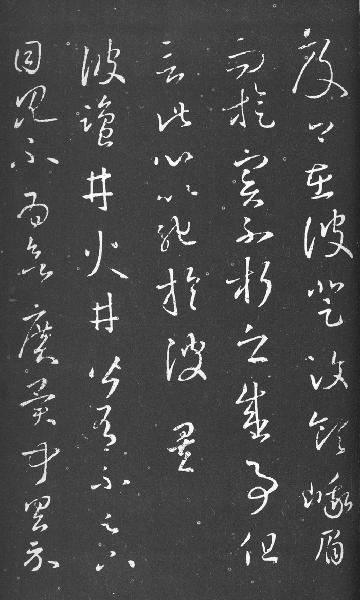 及卿在彼登汶領峨眉
而旋實不朽之盛事但
言此心以馳於彼矣
彼鹽井火井皆有不足下
目見不為欲廣異聞具示